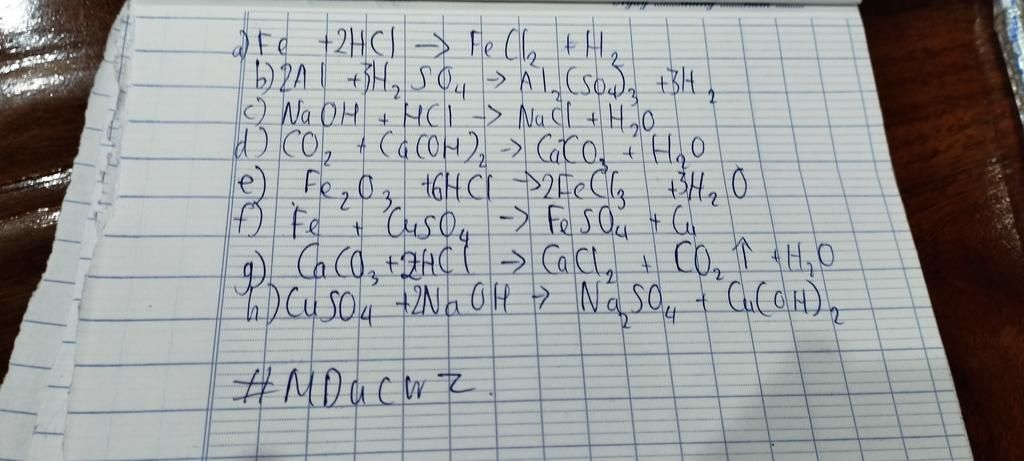 a) Fe + 2HCl → FeCl₂ + H₂
b) 2Al + 3H₂SO₄ → Al₂(SO₄)₃ + 3H₂
c) NaOH + HCl → NaCl + H₂O
d) CO₂ + Ca(OH)₂ → CaCO₃ + H₂O
e) Fe₂O₃ + 6HCl → 2FeCl₃ + 3H₂O
f) Fe + CuSO₄ → FeSO₄ + Cu
g) CaCO₃ + 2HCl → CaCl₂ + CO₂ ↑ + H₂O
h) CuSO₄ + 2NaOH → Na₂SO₄ + Cu(OH)₂